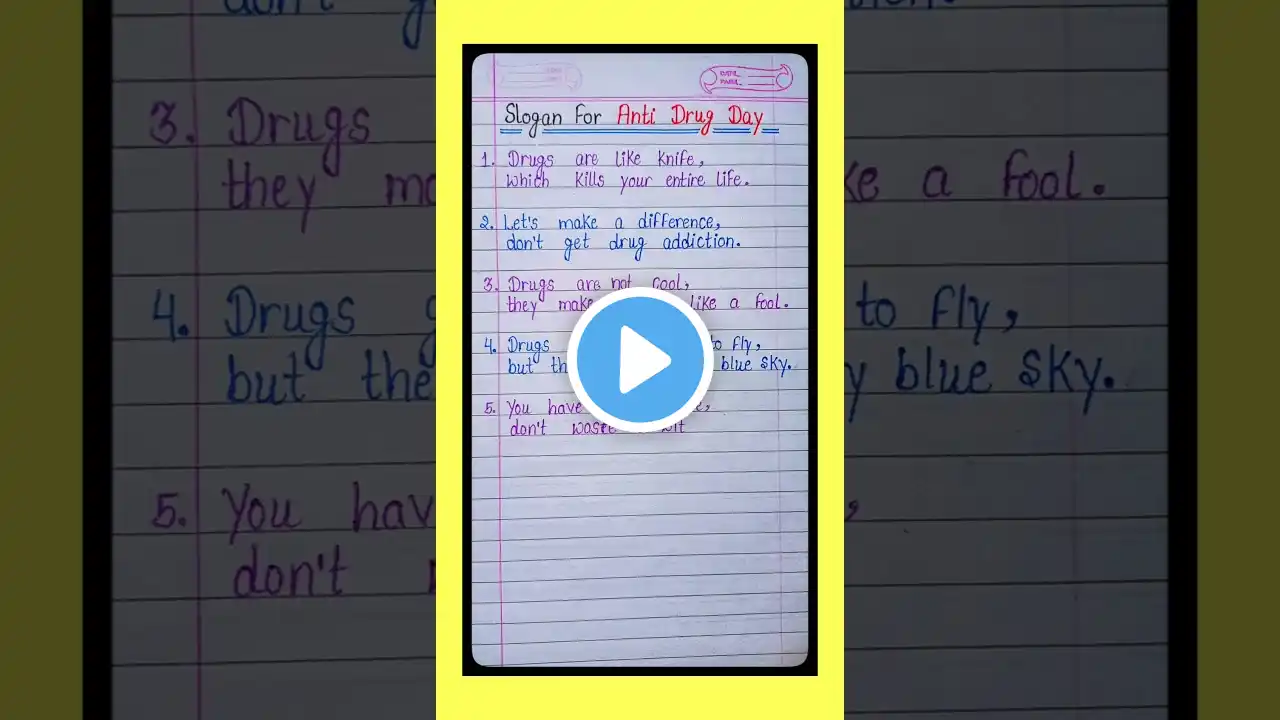 Slogan For Anti Drug Day
1. Drugs are like knife,
which kills your entire life.
2. Let's make a difference,
don't get drug addiction.
3. Drugs are not cool,
they make like a fool.
4. Drugs to fly,
but blue sky.
5. You have
don't waste